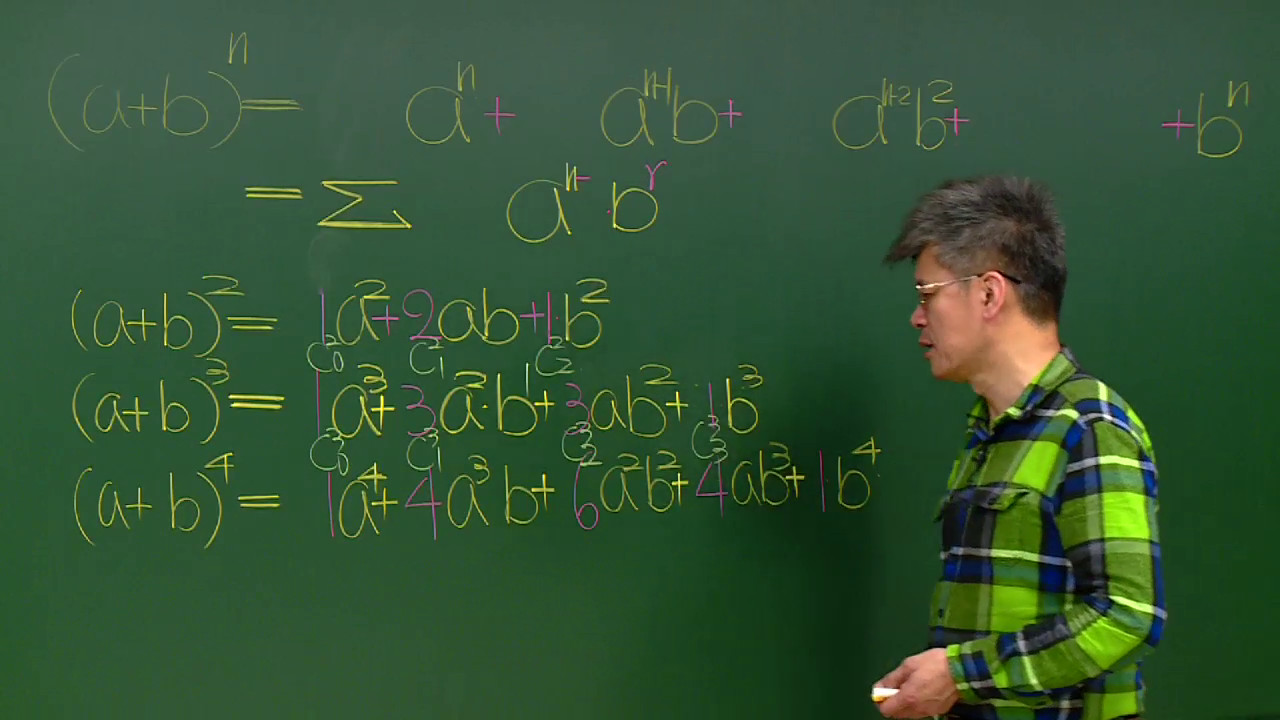 (a+b)ⁿ= aⁿ+ aⁿ⁻¹b+ aⁿ⁻²b²+ +bⁿ
=Σ aⁿ⁻ ·bʳ
(a+b)²= 1a²+2ab+1·b²
C²₀ C²₁ C²₂
(a+b)³= 1a³+3a²·b¹+3ab²+·1b³
C³₀ C³₁ C³₂ C³₃
(a+b)⁴= 1a⁴+4a³b+6a²b²+4ab³+1·b⁴